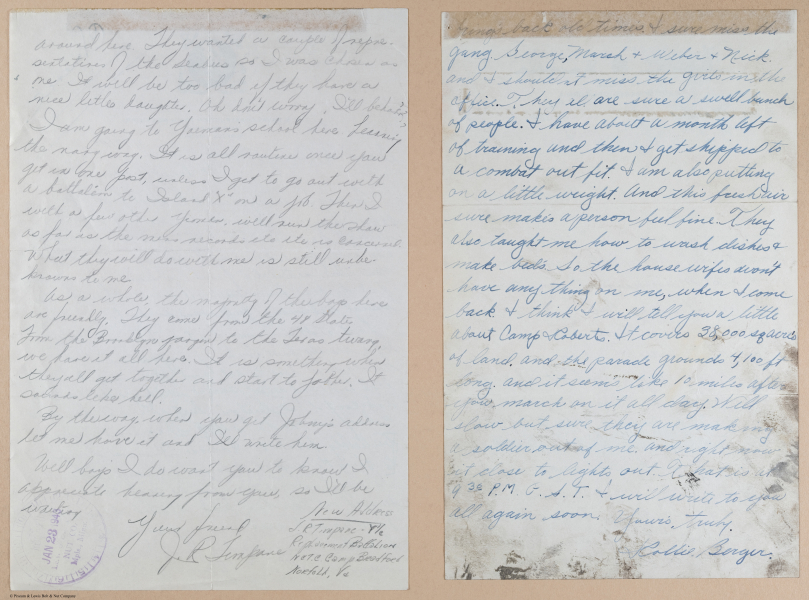 around here. They wanted a couple of repre-
sentatives of the Seabees so I was chosen as
me. It will be too bad if they have a
nice little daughter. Oh don't worry, I'll behave
I am going to Yeoman's school here learning
the navy way. It is all routine once you
get in one post, unless I get to go out with
a battalion to Island "X" on a job. Then I
with a few other will run the show
as far as the mens records etc etc is concerned.
What they will do with me is still unbe-
knowns to me.
As a whole, the majority of the boys here
are friendly. They come from the 48 States
from the Brooklyn to the Texas twang,
we have it all here. It is something when
they all get together and start to It
sounds like hell.
By the way when you get Johny's address
let me have it and I'll write him.
Well boys I do want you to know I
appreciate hearing from you, so I'll be
waiting
Your friend
J. R. Timpane
New Address
J. R. Timpane
Camp Bradford
Norfolk, Va
JAN 29
brings back old times. I sure miss the
gang George, March & Weber & Nick.
and I should it miss the girls in the
office. They all are sure a swell bunch
of people. I have about a month left
of training and then I get shipped to
a combat out fit. I am also putting
on a little weight. And this fresh air
sure makes a person feel fine. They
also taught me how to wash dishes &
make beds. So the house wifes won't
have any thing on me, when I come
back. I think I will tell you a little
about Camp Roberts. It covers 38,000 sq acres
of land. and the parade grounds 4,100 ft
long. and it seems like 10 miles after
you march on it all day. Well
slow but sure they are making
a soldier out of me. and right now
it close to lights out. That is at
9:30 P.M. I will write to you
all again soon. Yours, Truly,
Rollie Berger.
© Pictures & Lewis Bolt & Nut Company